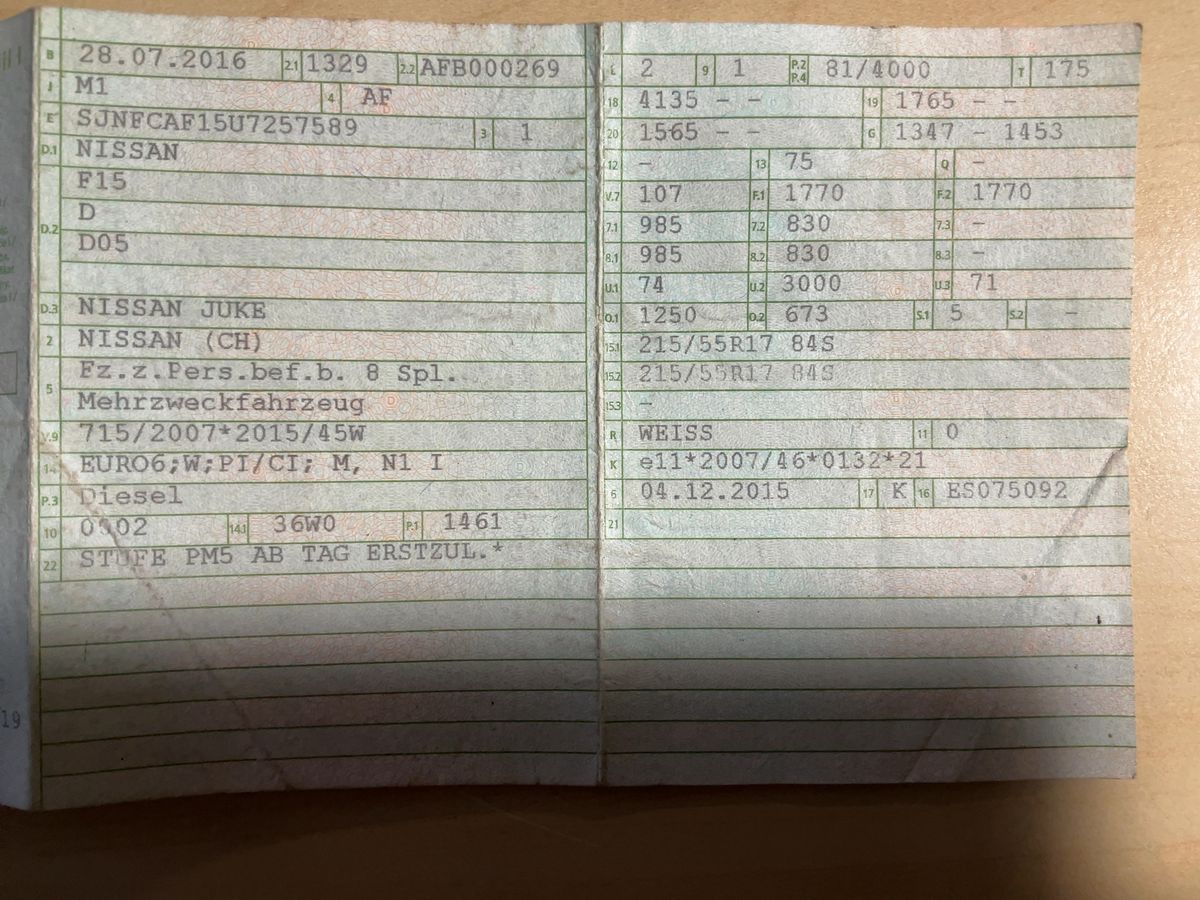 B 28.07.2016 2.1 1329 2.2 AFB000269
J M1 4 AF
E SJNFCAF15U7257589 3 1
D.1 NISSAN
F15
D.2 D
D05
D.3 NISSAN JUKE
2 NISSAN (CH)
5 Fz.z.Pers.bef.b. 8 Spl.
Mehrzweckfahrzeug
V.9 715/2007*2015/45W
14 EURO6;W;PI/CI; M, N1 I
P.3 Diesel
10 0002 14.1 36W0 P.1 1461
22 STUFE PM5 AB TAG ERSTZUL.*
L 2 9 1 P.2 P.4 81/4000 T 175
18 4135 - - 19 1765 - -
20 1565 - - G 1347 - 1453
12 - 13 75 Q -
V.7 107 F.1 1770 F.2 1770
7.1 985 7.2 830 7.3 -
8.1 985 8.2 830 8.3 -
U.1 74 U.2 3000 U.3 71
O.1 1250 O.2 673 S.1 5 S.2 -
15.1 215/55R17 84S
15.2 215/55R17 84S
15.3 -
R WEISS 11 0
K e11*2007/46*0132*21
6 04.12.2015 17 K 16 ES075092
21
19